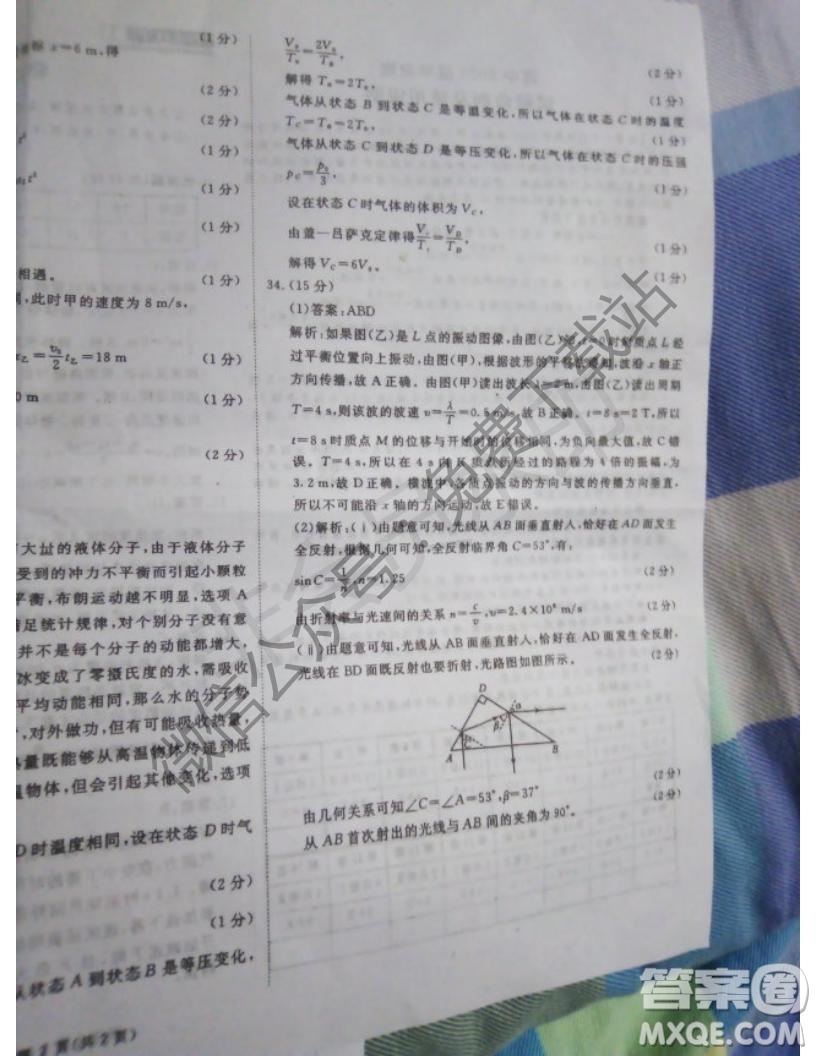 (1分)
标 x=6 m,得
(2分)
(2分)
(1分)
(1分)
(1分)
相遇。 (1分)
,此时甲的速度为 8 m/s,
t乙=18 m (1分)
0 m (1分)
(2分)
大量的液体分子,由于液体分子
受到的冲力不平衡而引起小颗粒
平衡,布朗运动越不明显,选项 A
足统计规律,对个别分子没有意
并不是每个分子的动能都增大,
冰变成了零摄氏度的水,需吸收
平均动能相同,那么水的分子势
,对外做功,但有可能吸收热量,
热量既能够从高温物体传递到低
温物体,但会引起其他变化,选项
D时温度相同,设在状态 D时气
(2分)
(1分)
从状态 A 到状态 B 是等压变化,
第 2 页(共 2 页)
(2分)
解得 T_B=2T_0, (1分)
气体从状态 B 到状态 C 是等温变化,所以气体在状态 C 时的温度
T_C=T_B=2T_0, (1分)
气体从状态 C 到状态 D 是等压变化,所以气体在状态 C 时的压强
p_C=p_0/3, (1分)
设在状态 C 时气体的体积为 V_C,
由盖—吕萨克定律得 (1分)
解得 V_C=6V_0。 (1分)
34.(15 分)
(1)答案:ABD
解析:如果图(乙)是 L 点的振动图像,由图(乙)知,t=0时刻质点 L 经
过平衡位置向上振动,由图(甲),根据波形的平移法可知,波沿 x 轴正
方向传播,故 A 正确。由图(甲)读出波长 λ=2 m,由图(乙)读出周期
T=4 s,则该波的波速 v=λ/T=0.5 m/s,故 B 正确。t=8 s=2 T,所以
t=8 s 时质点 M 的位移与开始时的位移相同,为负向最大值,故 C 错
误。T=4 s,所以在 4 s 内 K 质点所经过的路程为 4 倍的振幅,为
3.2 m,故 D 正确。横波中,各质点振动的方向与波的传播方向垂直,
所以不可能沿 x 轴的方向运动,故 E 错误。
(2)解析:(ⅰ)由题意可知,光线从 AB 面垂直射入,恰好在 AD 面发生
全反射,根据几何可知,全反射临界角 C=53°,有:
sinC=1/n,n=1.25 (2分)
由折射率与光速间的关系 n=c/v,v=2.4×10⁸ m/s (2分)
(ⅱ)由题意可知,光线从 AB 面垂直射入,恰好在 AD 面发生全反射,
光线在 BD 面既反射也要折射,光路图如图所示。 (2分)
D
α
β
C
A
B
由几何关系可知∠C=∠A=53°,β=37° (2分)
从 AB 首次射出的光线与 AB 间的夹角为 90°。 (2分)
微信公众号：免费下载站
答案圈
MXQE.COM